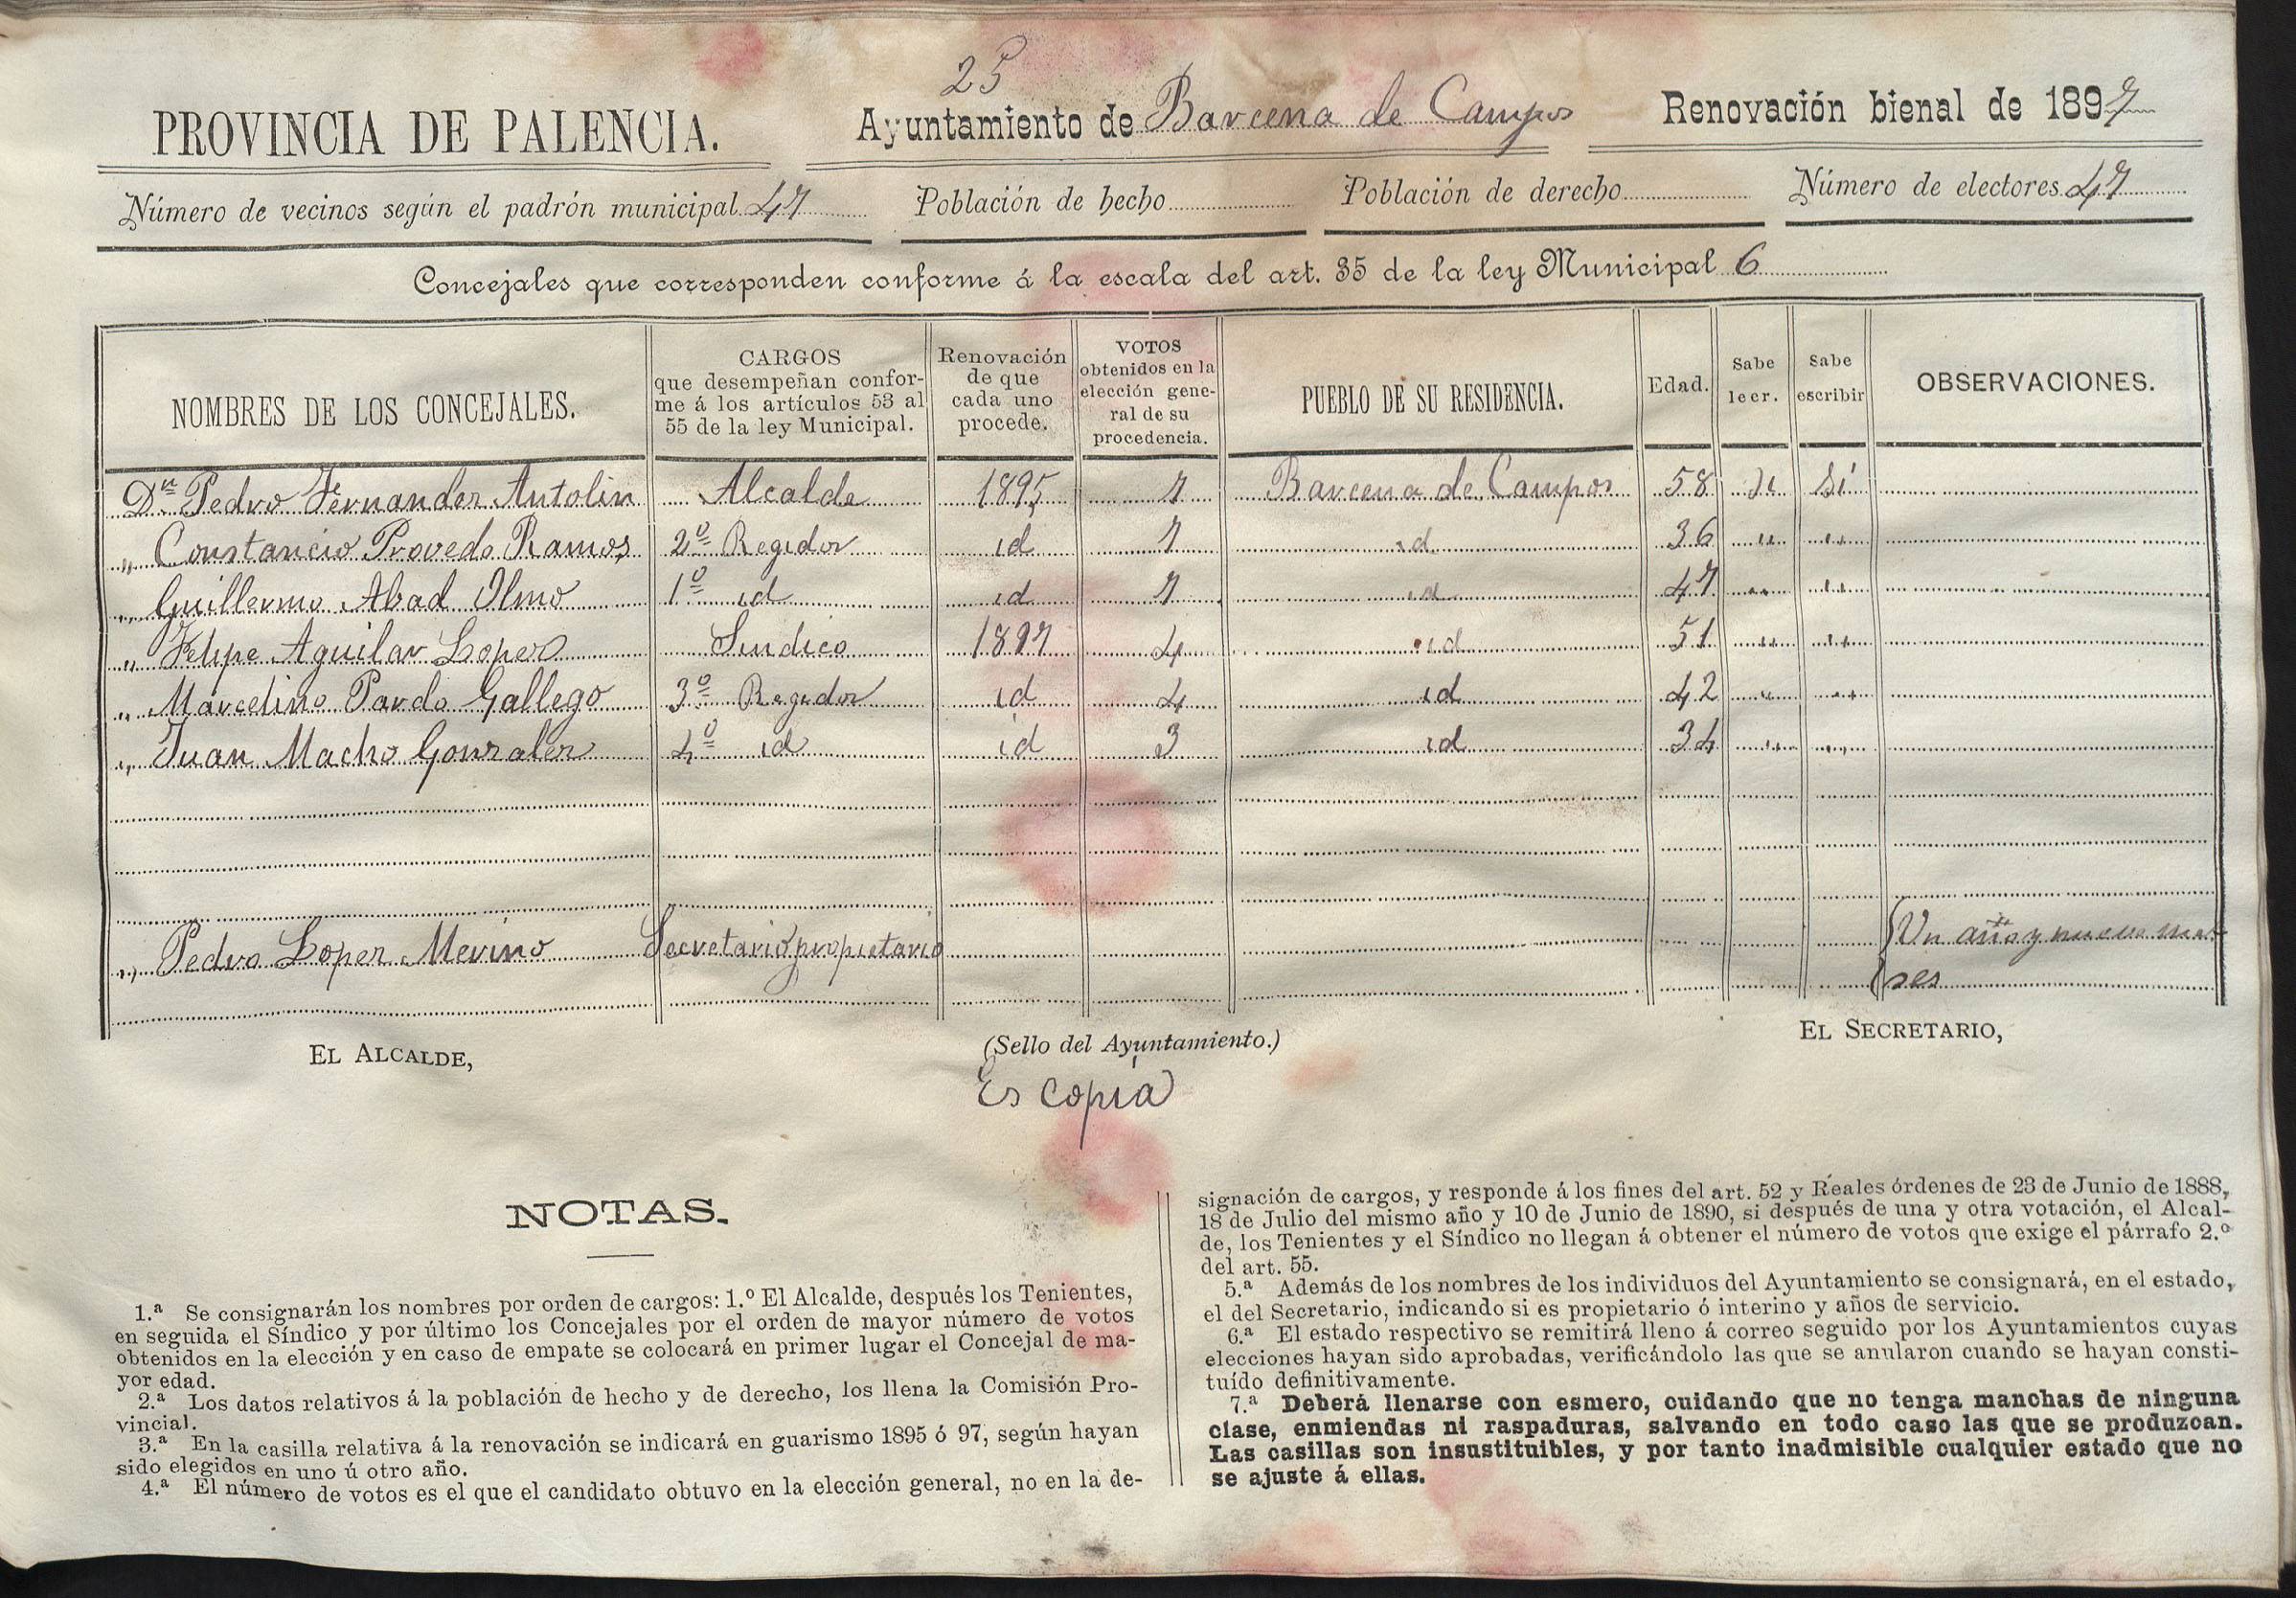 25
PROVINCIA DE PALENCIA.
Ayuntamiento de Barcena de Campos
Renovación bienal de 1897
Número de vecinos según el padrón municipal 47
Población de hecho
Población de derecho
Número de electores 47
Concejales que corresponden conforme á la escala del art. 35 de la ley Municipal 6
NOMBRES DE LOS CONCEJALES.
CARGOS
que desempeñan confor-
me á los artículos 53 al
55 de la ley Municipal.
Renovación
de que
cada uno
procede.
VOTOS
obtenidos en la
elección gene-
ral de su
procedencia.
PUEBLO DE SU RESIDENCIA.
Edad.
Sabe
leer.
Sabe
escribir
OBSERVACIONES.
Dn. Pedro Fernandez Antolin Alcalde 1895 7 Barcena de Campos 58 si si
„ Constancio Provedo Ramos 2º Regidor id 7 id 36 " "
„ Guillermo Abad Olmo 1º id id 7 id 47 " "
„ Felipe Aguilar Lopez Sindico 1897 4 id 51 " "
„ Marcelino Pardo Gallego 3º Regidor id 4 id 42 " "
„ Juan Macho Gonzalez 4º id id 3 id 34 " "
„ Pedro Lopez Merino Secretario propietario Un año y nueve me-
ses
EL ALCALDE,
(Sello del Ayuntamiento.)
EL SECRETARIO,
Es copia
NOTAS.
1.ª Se consignarán los nombres por orden de cargos: 1.º El Alcalde, después los Tenientes,
en seguida el Síndico y por último los Concejales por el orden de mayor número de votos
obtenidos en la elección y en caso de empate se colocará en primer lugar el Concejal de ma-
yor edad.
2.ª Los datos relativos á la población de hecho y de derecho, los llena la Comisión Pro-
vincial.
3.ª En la casilla relativa á la renovación se indicará en guarismo 1895 ó 97, según hayan
sido elegidos en uno ú otro año.
4.ª El número de votos es el que el candidato obtuvo en la elección general, no en la de-
signación de cargos, y responde á los fines del art. 52 y Reales órdenes de 23 de Junio de 1888,
18 de Julio del mismo año y 10 de Junio de 1890, si después de una y otra votación, el Alcal-
de, los Tenientes y el Síndico no llegan á obtener el número de votos que exige el párrafo 2.º
del art. 55.
5.ª Además de los nombres de los individuos del Ayuntamiento se consignará, en el estado,
el del Secretario, indicando si es propietario ó interino y años de servicio.
6.ª El estado respectivo se remitirá lleno á correo seguido por los Ayuntamientos cuyas
elecciones hayan sido aprobadas, verificándolo las que se anularon cuando se hayan consti-
tuído definitivamente.
7.ª Deberá llenarse con esmero, cuidando que no tenga manchas de ninguna
clase, enmiendas ni raspaduras, salvando en todo caso las que se produzcan.
Las casillas son insustituibles, y por tanto inadmisible cualquier estado que no
se ajuste á ellas.